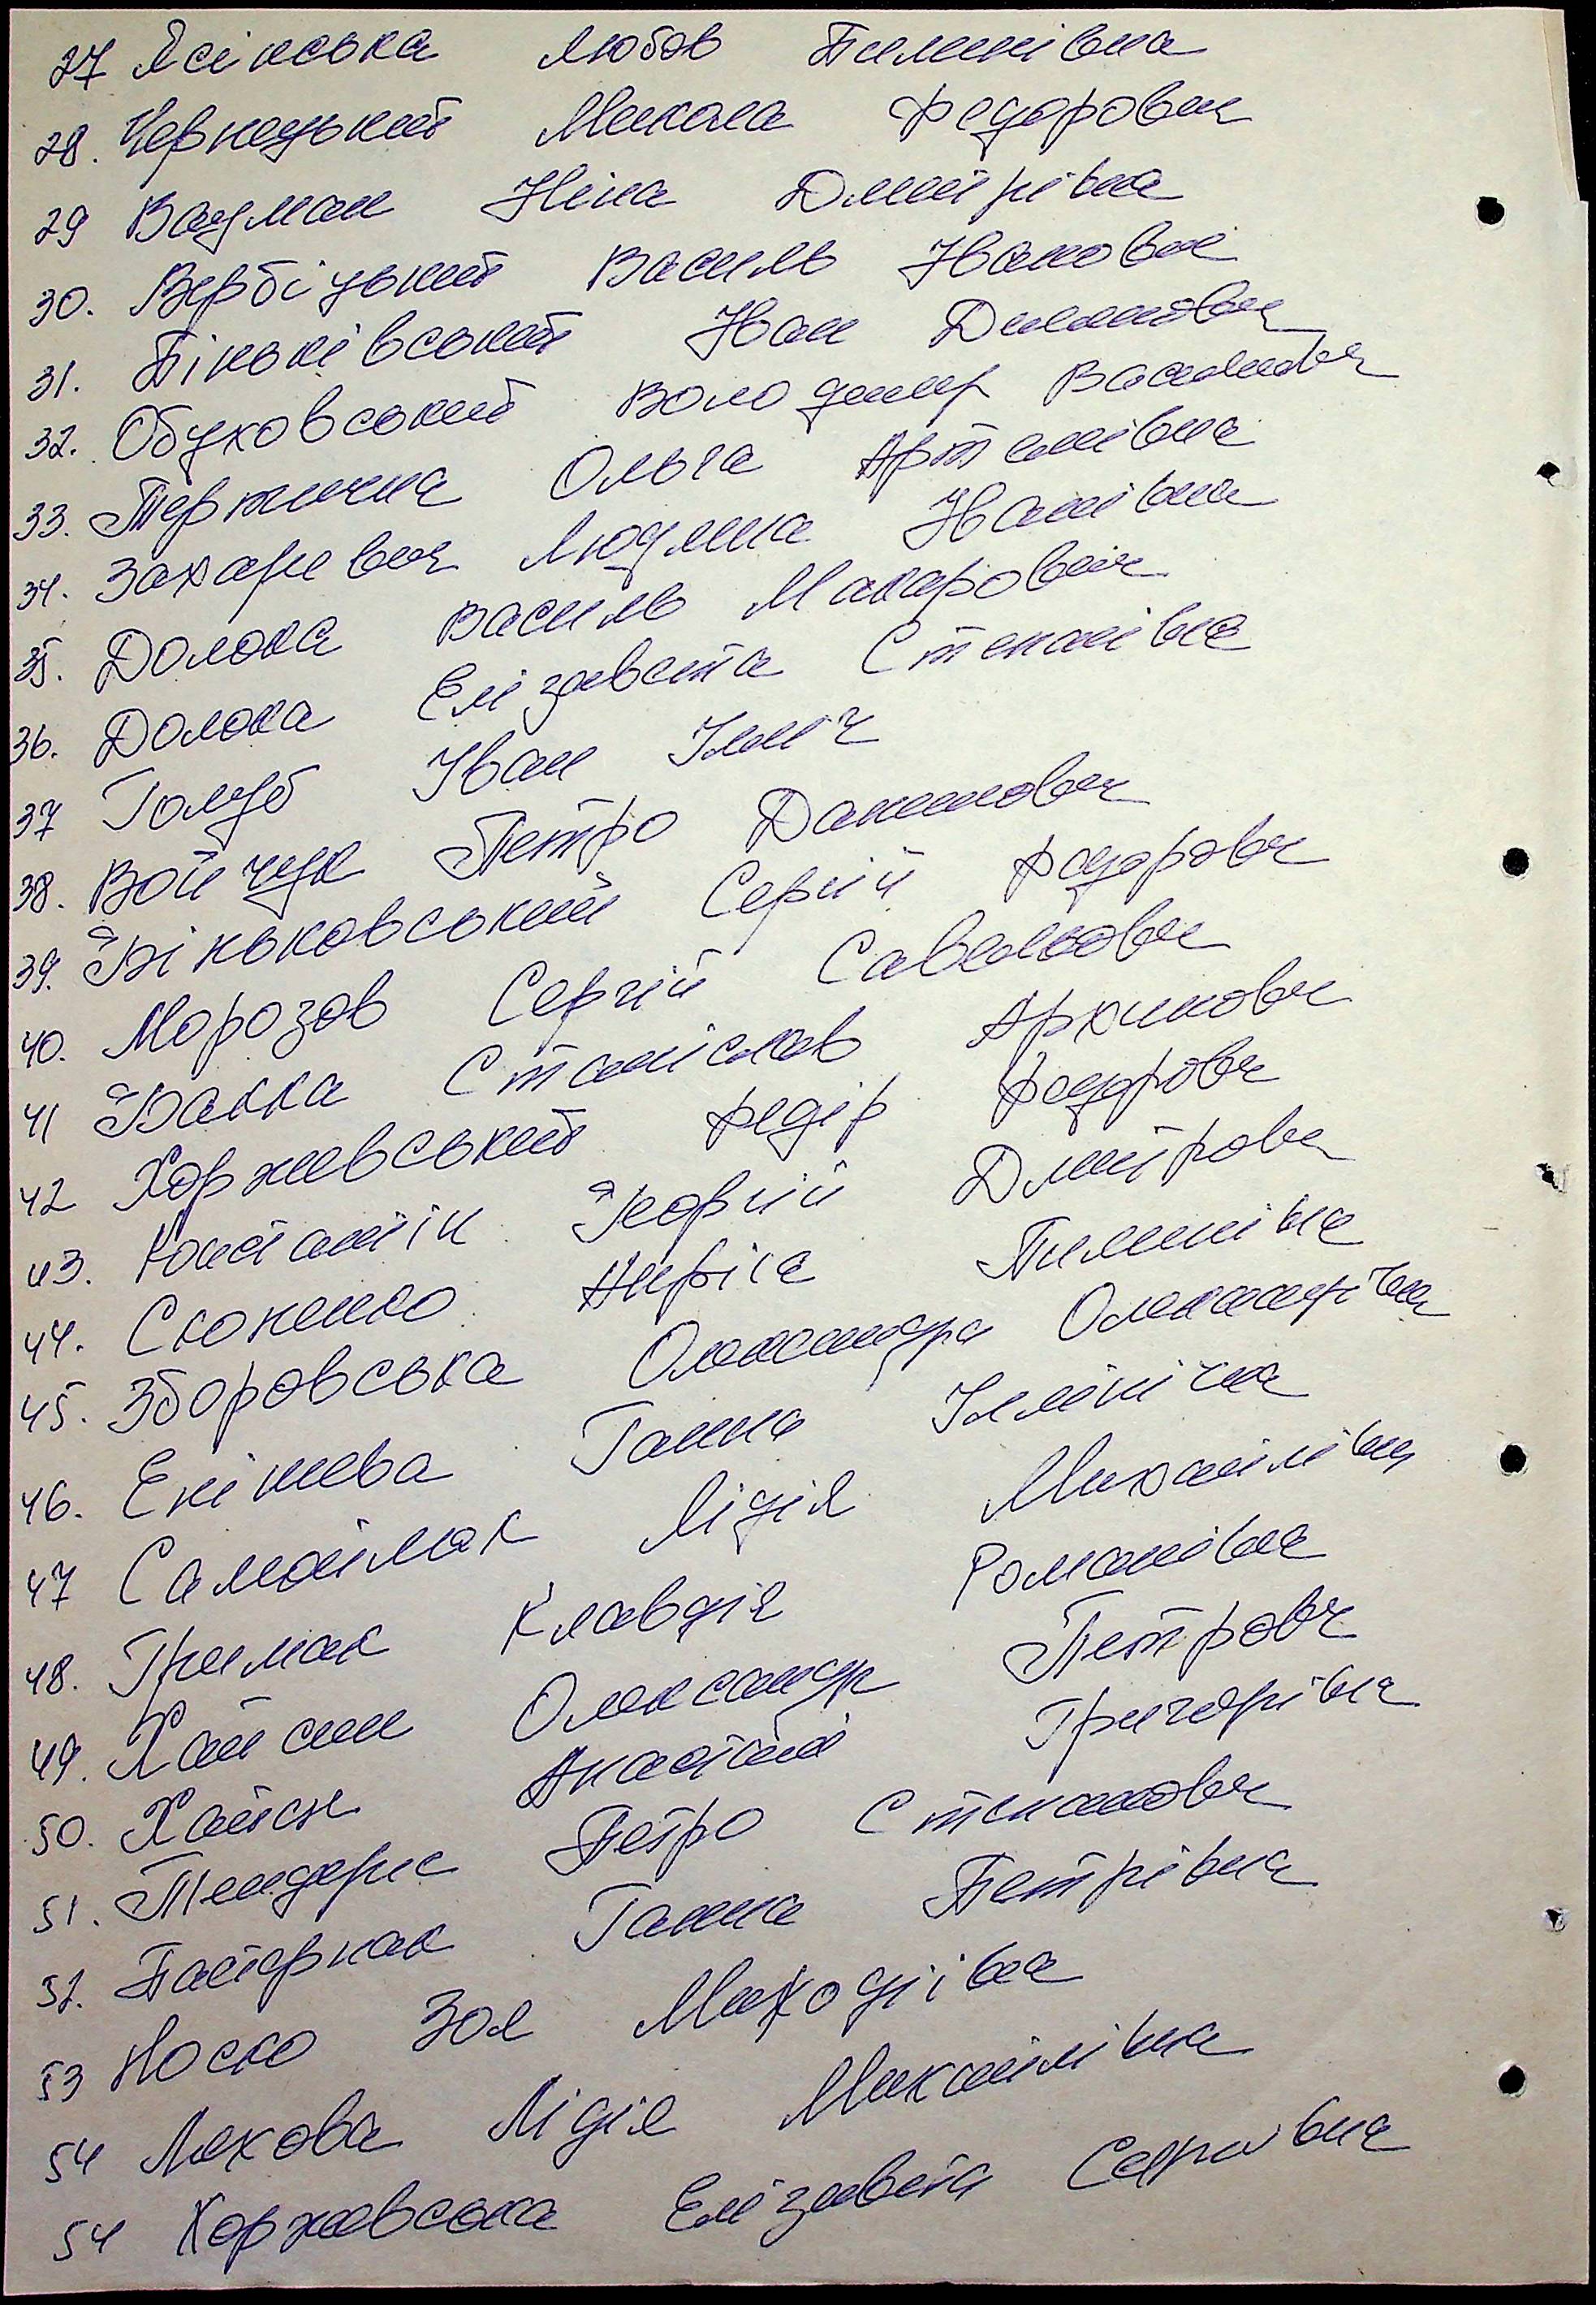 27 Ясінська Любов Пилипівна
28. Чернецький Микола Федорович
29 Вацман Ніна Дмитрівна
30. Вербіцький Василь Іванович
31. Піньківський Іван Пилипович
32. Обуховський Володимир Васильович
33. Ольга Артемівна
34. Захаревич Людмила Іванівна
35. Долока Василь Макарович
36. Долока Елізавета Степанівна
37 Голуб Іван Ілліч
38. Войчук Петро Данилович
39. Зіньковський Сергій Федорович
40. Морозов Сергій Савелійович
41 Станіслав Архипович
42 Коржевський Федір Федорович
43. Константін Георгій Дмитрович
44. Пилипівна
45. Зборовська Олександра Олександрівна
46. Екімева Ганна Іллінічна
47 Самойлак Лідія Михайлівна
48. Примак Клавдія Романівна
49. Хайсин Олександр Петрович
50. Хайсин Анастасія Григорівна
51. Петро Степанович
52. Пастернак Ганна Петрівна
53 Носко Зоя Мифодіївна
54 Ляхова Лідія Михайлівна
54 Коржевська Елізавета Сергіївна